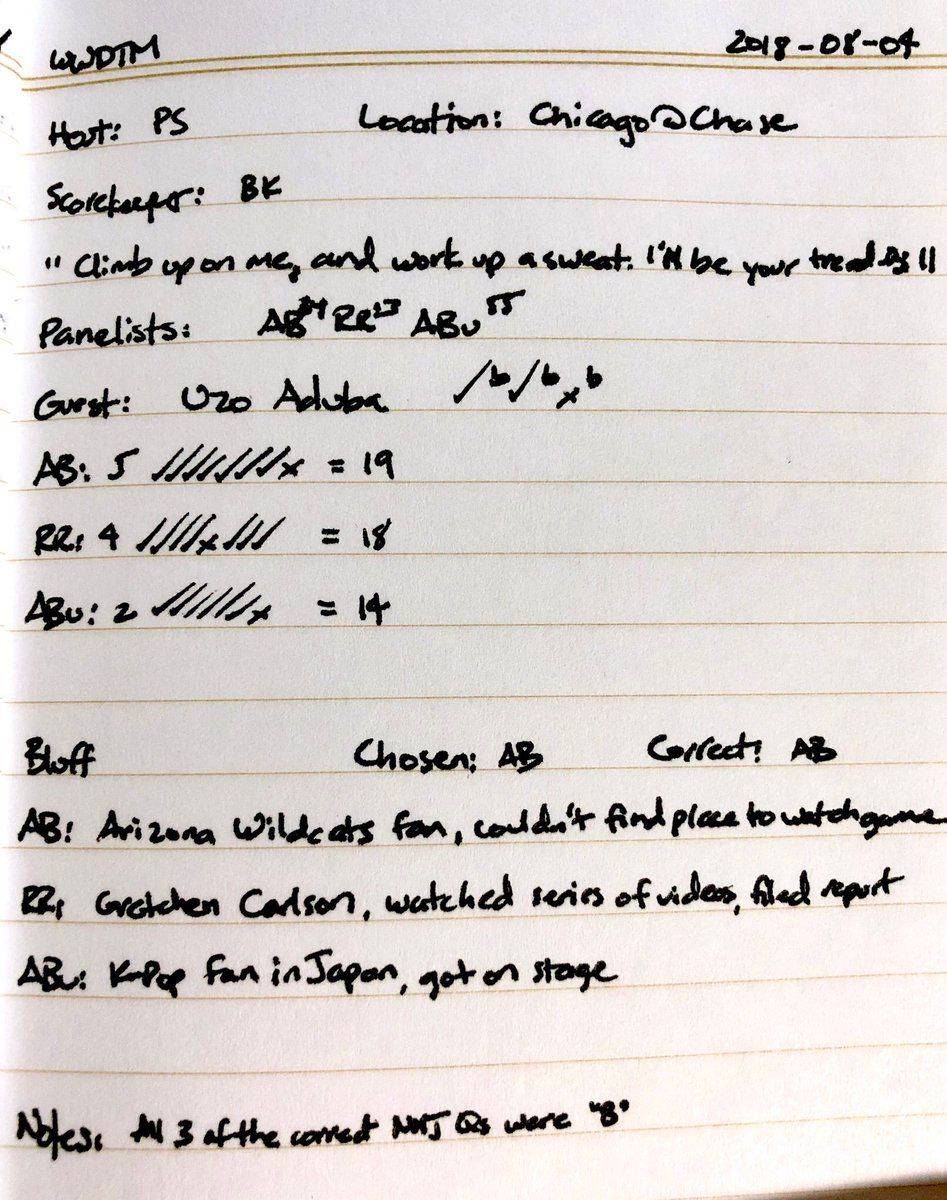 WWDTM 2018-08-04
Host: PS Location: Chicago@Chase
Scorekeeper: BK
"Climb up on me, and work up a sweat. I'll be your
Panelists: AB RR ABu
Guest: Uzo Aduba ✓b ✓b xb
AB: 5 ///////x = 19
RR: 4 ////x/// = 18
ABu: 2 //////x = 14
Bluff Chosen: AB Correct: AB
AB: Arizona Wildcats fan, couldn't find place to watch game
RR: Gretchen Carlson, watched series of videos, filed report
ABu: K-Pop fan in Japan, got on stage
Notes: All 3 of the correct NMJ Qs were "B"